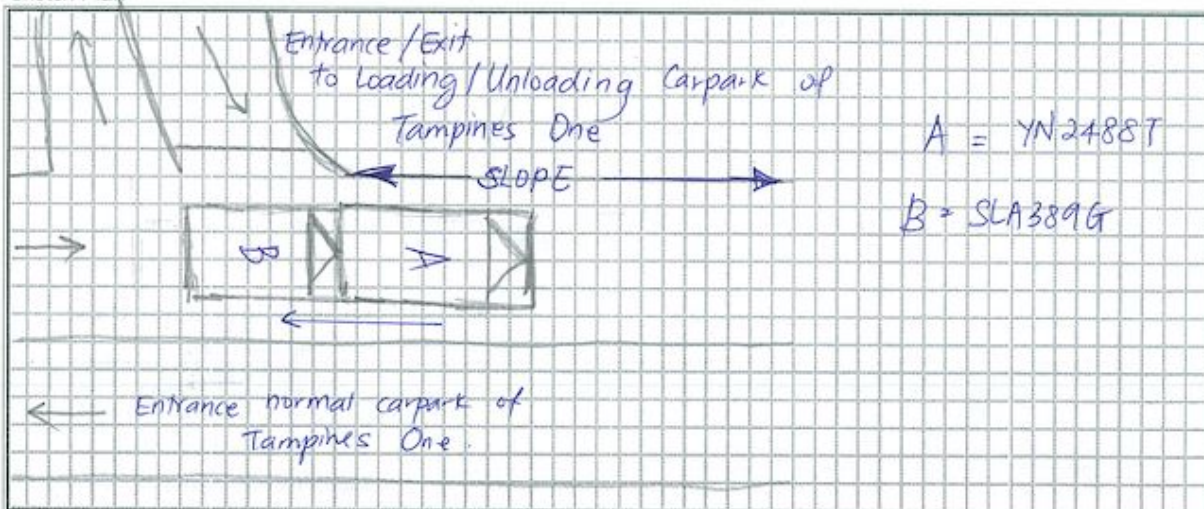 Entrance/Exit
to Loading/Unloading Carpark of
Tampines One
SLOPE
A = YN2488T
B = SLA389G
B
A
Entrance normal carpark of
Tampines One.